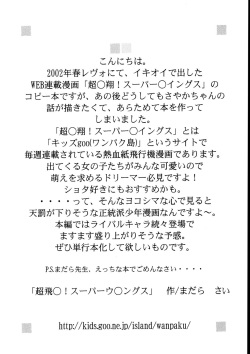 こんにちは。
2002年春レヴォにて、イキオイで出した
WEB連載漫画「超〇翔！スーパー〇イングス」の
コピー本ですが、あの後どうしてもさやかちゃんの
話が描きたくて、あらためて本を作って
しまいました。
「超〇翔！スーパー〇イングス」とは
「キッズgoo(ワンパク島)」というサイトで
毎週連載されている熱血紙飛行機漫画であります。
出てくる女の子たちがみんな可愛いので
萌えを求めるドリーマー必見ですよ！
ショタ好きにもおすすめかも。
・・・・って、そんなヨコシマな心で見ると
天罰が下りそうな正統派少年漫画なんですよ〜。
本編ではライバルキャラ続々登場で
ますます盛り上がりそうな予感。
ぜひ単行本化して欲しいものです。
P.S.まだら先生、えっちな本でごめんなさい・・・・
「超飛〇！スーパーウ〇ングス」 作/まだら さい
http://kids.goo.ne.jp/island/wanpaku/